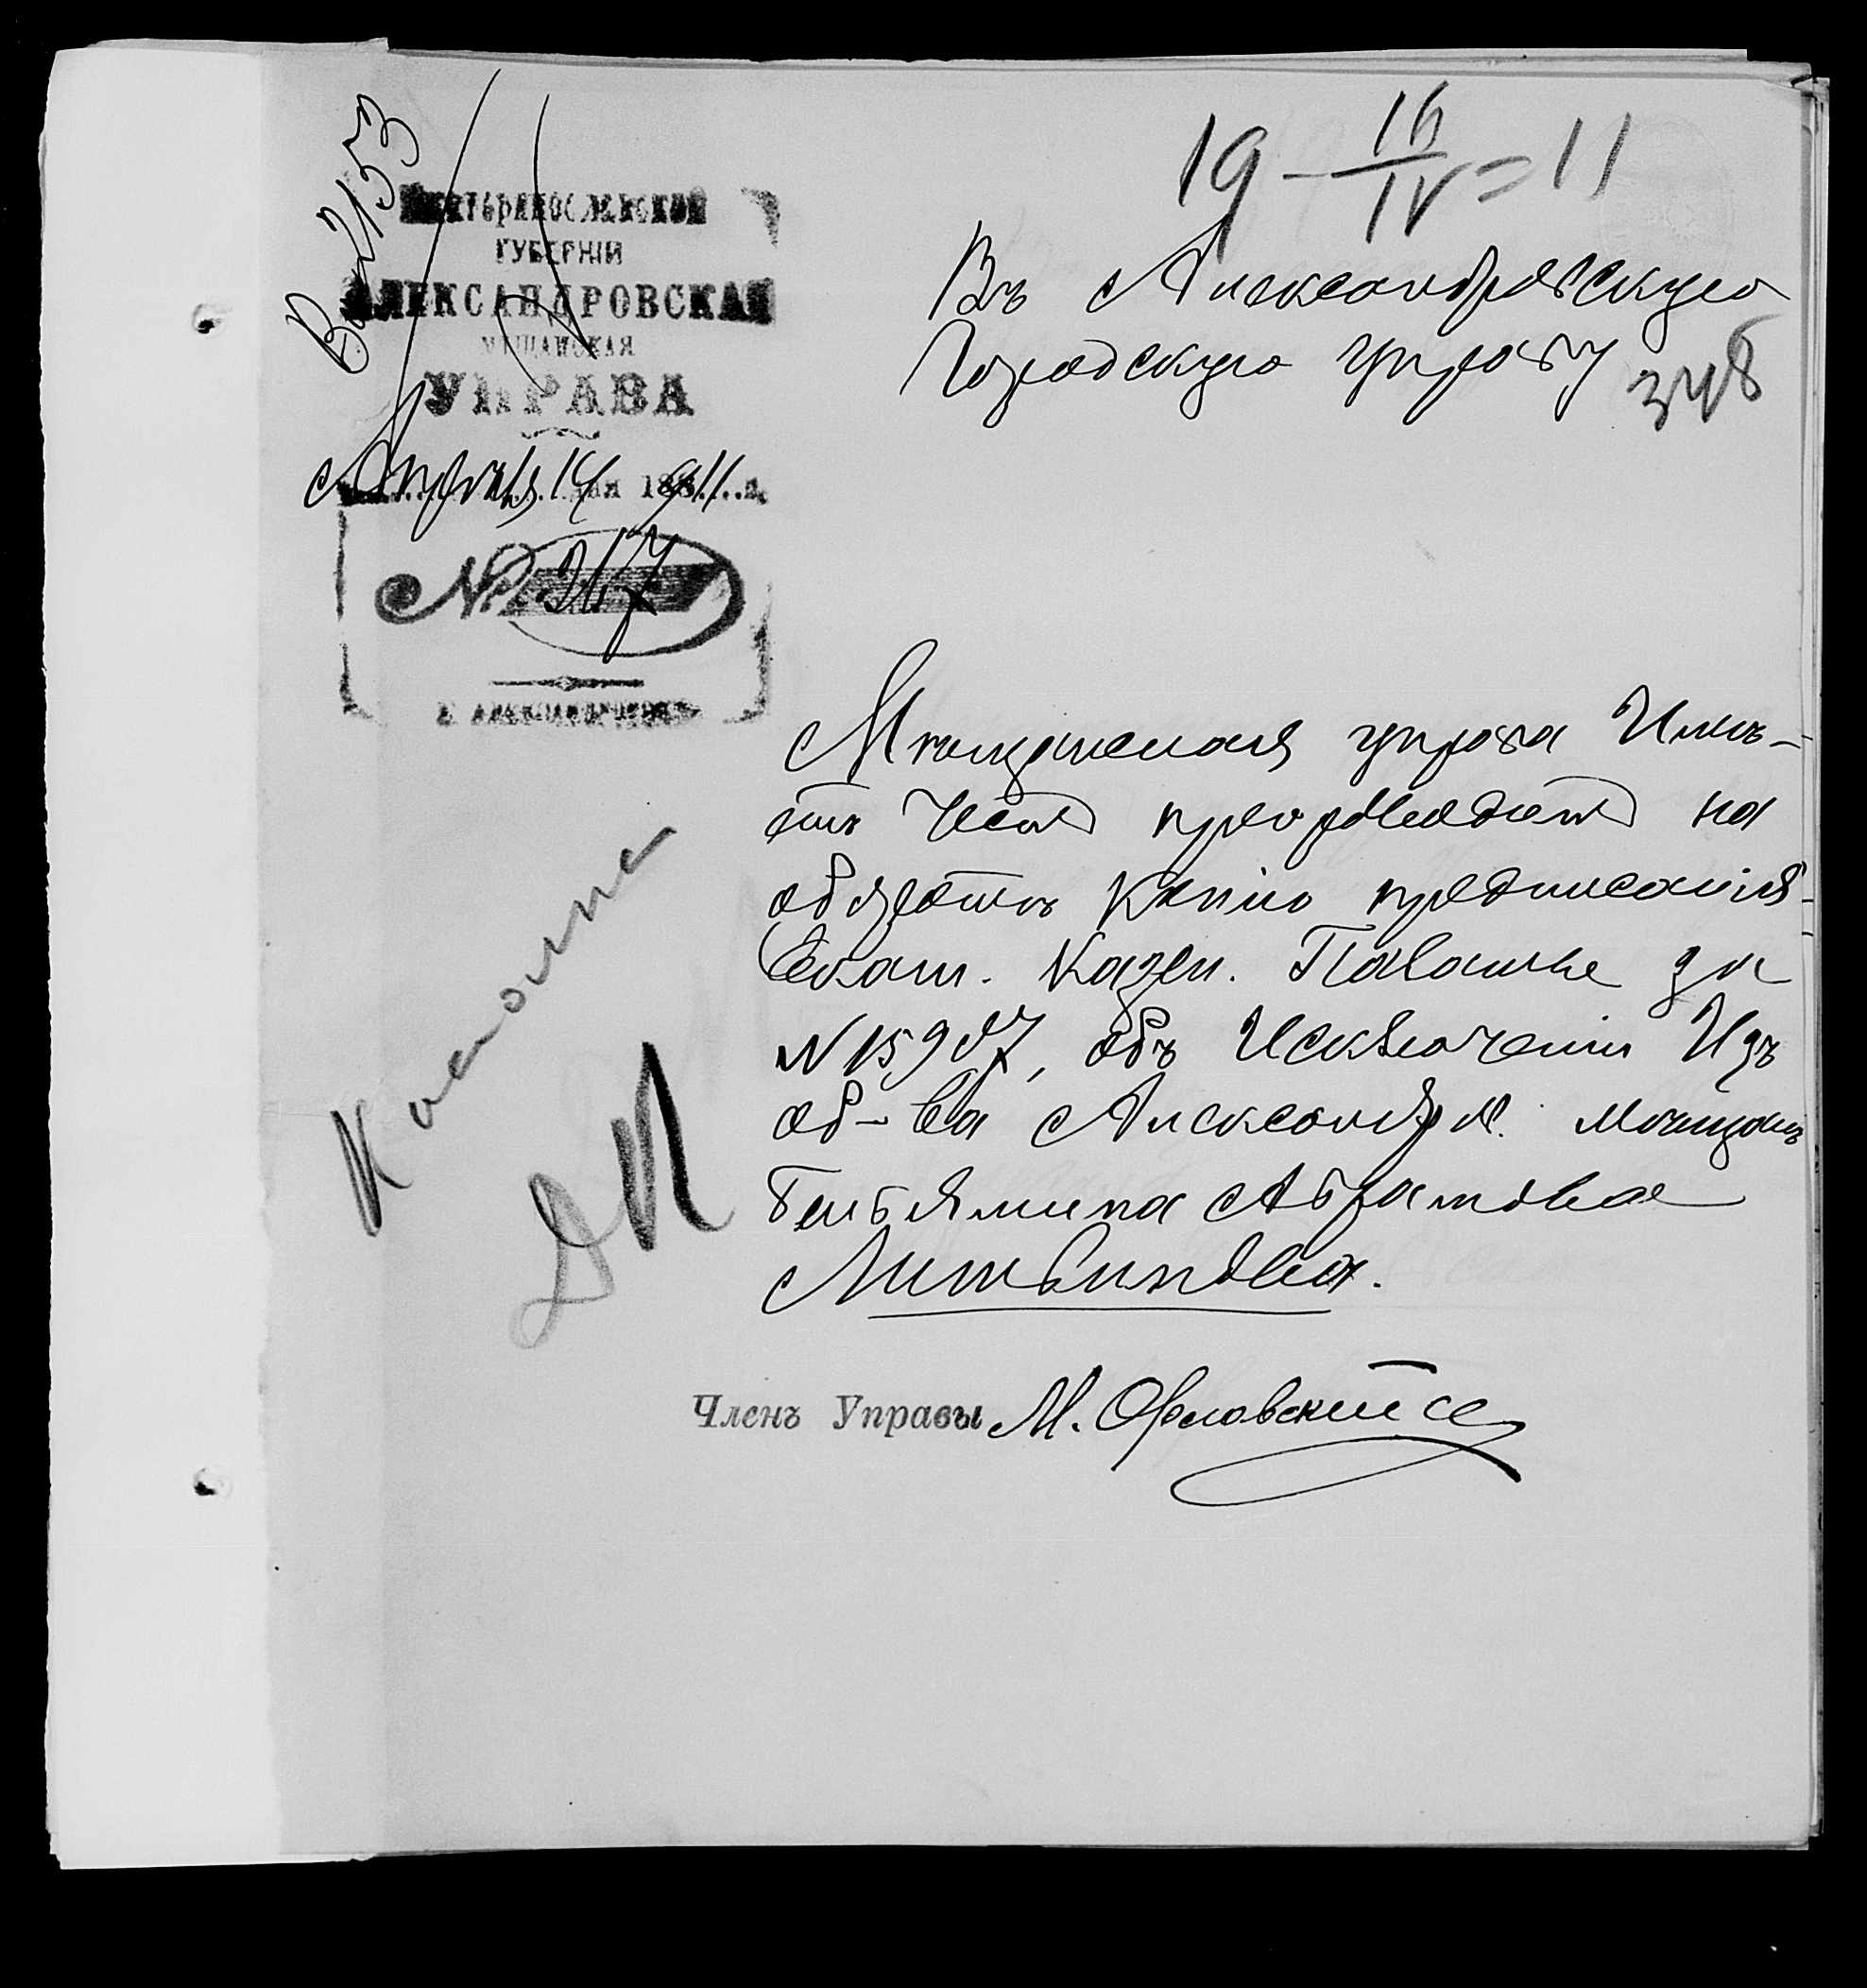 Вх 2153
19 16/IV 11
ЕКАТЕРИНОСЛАВСКОЙ
ГУБЕРНІИ
АЛЕКСАНДРОВСКАЯ
МѢЩАНСКАЯ
УПРАВА
Апрѣля 14 дня 1911 г.
№ 217
Г. АЛЕКСАНДРОВСКЪ
Въ Александровскую
Городскую управу
348
Мѣщанская управа Имѣ-
етъ Честь препроводить на
обор. копію предписанія
Екат. Казен. Палаты за
N 15907, объ Исключеніи Изъ
об-ва Александров. мѣщан.
Беньямина Абрамова
Литвинова.
Членъ Управы М. Орловскій